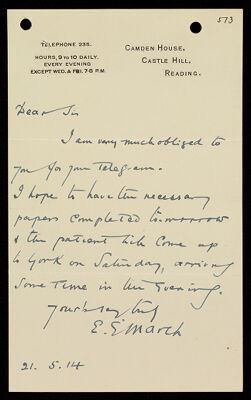 573
TELEPHONE 235.
HOURS, 9 TO 10 DAILY.
EVERY EVENING
EXCEPT WED. & FRI. 7-8 P.M.
CAMDEN HOUSE,
CASTLE HILL,
READING.
Dear Sir
I am very much obliged to
you for your Telegram.
I hope to have the necessary
papers completed tomorrow
& the patient will come up
to York on Saturday, arriving
some time in the Evening.
Yours truly
E. E. March
21. 5. 14